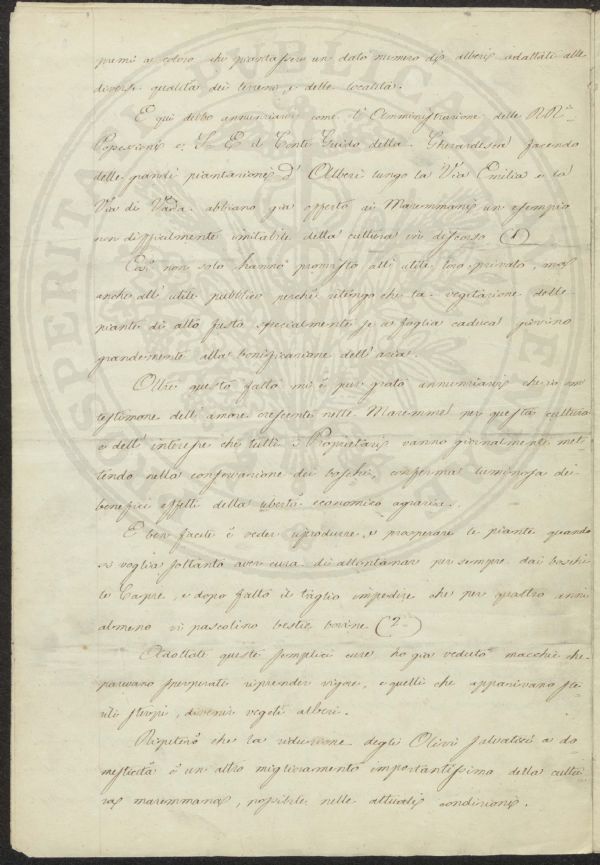 premi a coloro che piantassero un dato numero di alberi adattati alle
diverse qualità dei terreni, e delle località.
E qui debbo annunziarvi come l'Amministrazione delle RR.
Possessioni e S. E. il Conte Guido della Gherardesca facendo
delle grandi piantazioni d'Alberi lungo la Via Emilia e la
Via di Vada abbiano già offerto ai Maremmani un esempio
non difficilmente imitabile della cultura in discorso (1)
Essi non solo hanno provvisto all'utile loro privato, ma
anche all'utile pubblico perchè ritengo che la vegetazione delle
piante di alto fusto specialmente se a foglia caduca giovino
grandemente alla bonificazione dell'aria.
Oltre questo fatto mi è pur grato annunziarvi che io son
testimone dell'amore crescente nelle Maremme per questa cultura
e dell'interesse che tutti i Proprietari vanno giornalmente met-
tendo nella conservazione dei boschi, conferma luminosa dei
benefici effetti della libertà economico agraria.
È ben facile è veder riprodurre, e prosperare le piante quando
si voglia soltanto aver cura di allontanar per sempre dai boschi
le Capre, e dopo fatto il taglio impedire che per quattro anni
almeno vi pascolino bestie bovine (2)
Adottate queste semplici cure ho già veduto macchie che
parevano sperperate riprender vigore, e quelli che apparivano ste-
rili sterpi, divenir vegeti alberi.
Ripeterò che la riduzione degli Olivi salvatici a do
mesticità è un altro miglioramento importantissimo della cultu
ra maremmana, possibile nelle attuali condizioni.